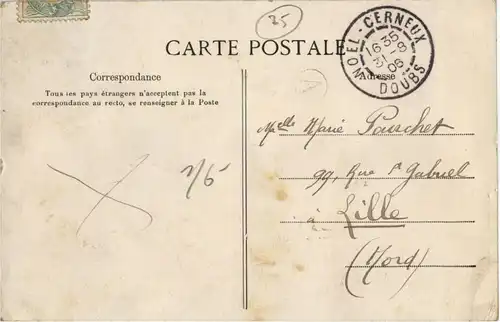 35
CARTE POSTALE
NOEL-CERNEUX
DOUBS
Correspondance
Adresse
Tous les pays étrangers n'acceptent pas la
correspondance au recto, se renseigner à la Poste
A
Melle Marie Pourchet
99, Rue St Gabriel
à Lille
(Nord)